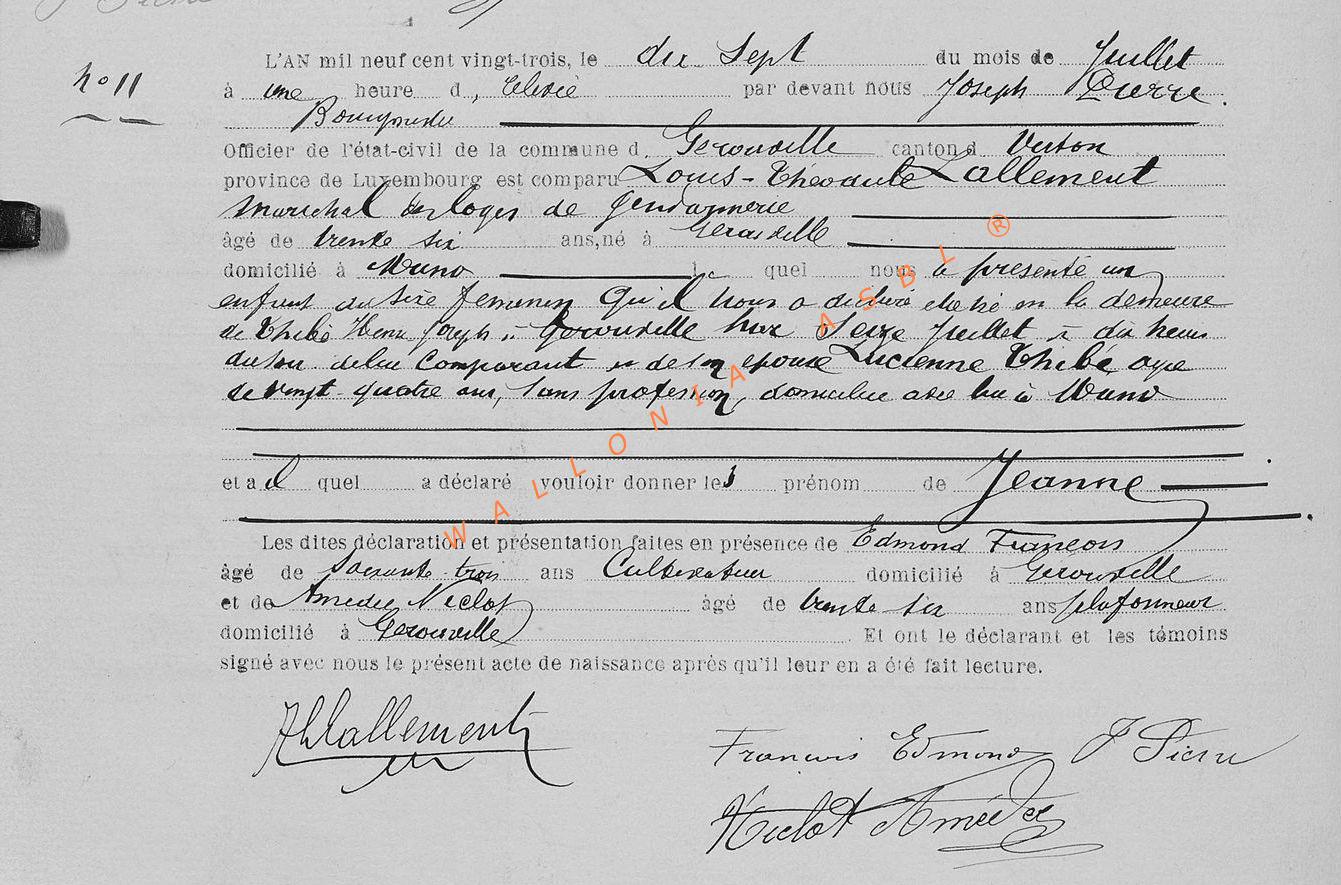 N° 11
L'AN mil neuf cent vingt-trois, le dix sept du mois de Juillet
à une heure d, par devant nous Joseph Pierre
Bourgmestre
Officier de l'état-civil de la commune d Gerouville canton d Virton
province de Luxembourg est comparu Louis-Théodule Lallement
Maréchal des logis de gendarmerie
âgé de trente six ans, né à Gerouville
domicilié à Muno le quel nous a présenté un
enfant du sexe féminin qu'il nous a déclaré être né en la demeure
de Thibé Henri Joseph à Gerouville hier Seize Juillet à dix heures
du soir de lui Comparant et de son épouse Lucienne Thibé agée
de vingt-quatre ans, sans profession, domiciliée avec lui à Muno
et a il quel a déclaré vouloir donner les prénom de Jeanne
Les dites déclaration et présentation faites en présence de Edmond François
âgé de Soixante trois ans Cultivateur domicilié à Gerouville
et de Amédée Niclot âgé de trente six ans plafonneur
domicilié à Gerouville Et ont le déclarant et les témoins
signé avec nous le présent acte de naissance après qu'il leur en a été fait lecture.
Lallement
François Edmond J Pierre
Niclot Amédée
WALLONIA ASBL ®